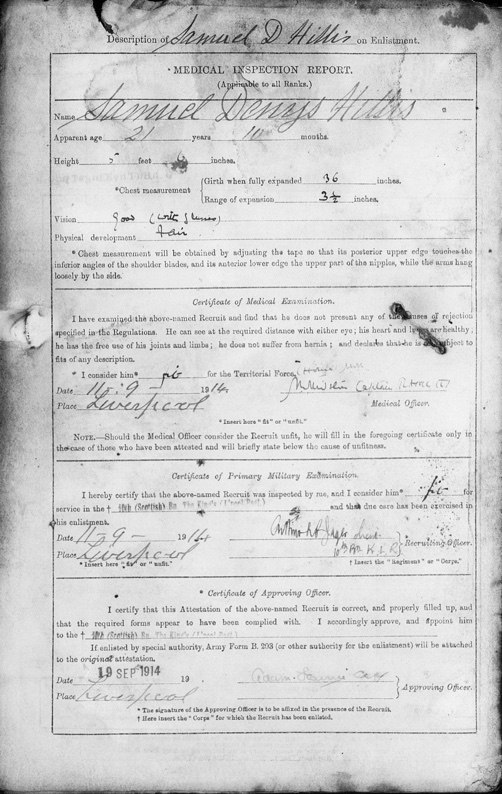 Description of Samuel D Hillis on Enlistment.
* MEDICAL INSPECTION REPORT.
(Applicable to all Ranks.)
Name Samuel Denys Hillis
Apparent age 21 years 10 months.
Height 5 feet 6 inches.
*Chest measurement { Girth when fully expanded 36 inches.
Range of expansion 3½ inches.
Vision Good (with glasses)
Physical development Fair
* Chest measurement will be obtained by adjusting the tape so that its posterior upper edge touches the
inferior angles of the shoulder blades, and its anterior lower edge the upper part of the nipples, while the arms hang
loosely by the side.
Certificate of Medical Examination.
I have examined the above-named Recruit and find that he does not present any of the causes of rejection
specified in the Regulations. He can see at the required distance with either eye; his heart and lungs are healthy;
he has the free use of his joints and limbs; he does not suffer from hernia; and declares that he is not subject to
fits of any description.
* I consider him* fit for the Territorial Force.
Date 11 : 9 - 1914
Captain
Place Liverpool Medical Officer.
* Insert here "fit" or "unfit."
NOTE.—Should the Medical Officer consider the Recruit unfit, he will fill in the foregoing certificate only in
the case of those who have been attested and will briefly state below the cause of unfitness.
Certificate of Primary Military Examination.
I hereby certify that the above-named Recruit was inspected by me, and I consider him* fit for
service in the † 10th (Scottish) Bn. The King's (L'pool Regt.) and that due care has been exercised in
his enlistment.
Date 11-9- 1914
10th Bn K L R } Recruiting Officer.
Place Liverpool
* Insert here "fit" or "unfit." † Insert the "Regiment" or "Corps."
* Certificate of Approving Officer.
I certify that this Attestation of the above-named Recruit is correct, and properly filled up, and
that the required forms appear to have been complied with. I accordingly approve, and appoint him
to the † 10th (Scottish) Bn. The King's (L'pool Regt.)
If enlisted by special authority, Army Form B. 203 (or other authority for the enlistment) will be attached
to the original attestation.
19 SEP 1914
Date 19
} Approving Officer.
Place Liverpool
* The signature of the Approving Officer is to be affixed in the presence of the Recruit.
† Here insert the "Corps" for which the Recruit has been enlisted.